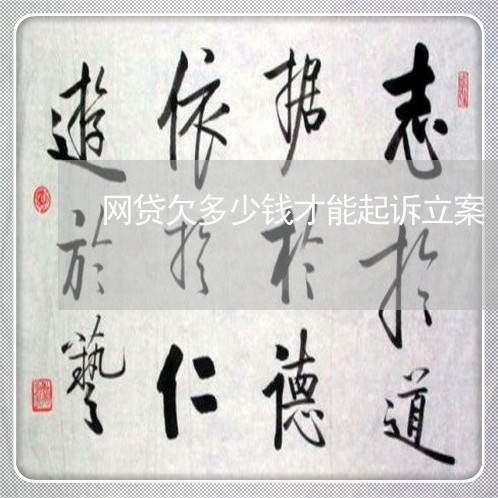 志於道
据於德
依於仁
遊於藝
网贷欠多少钱才能起诉立案